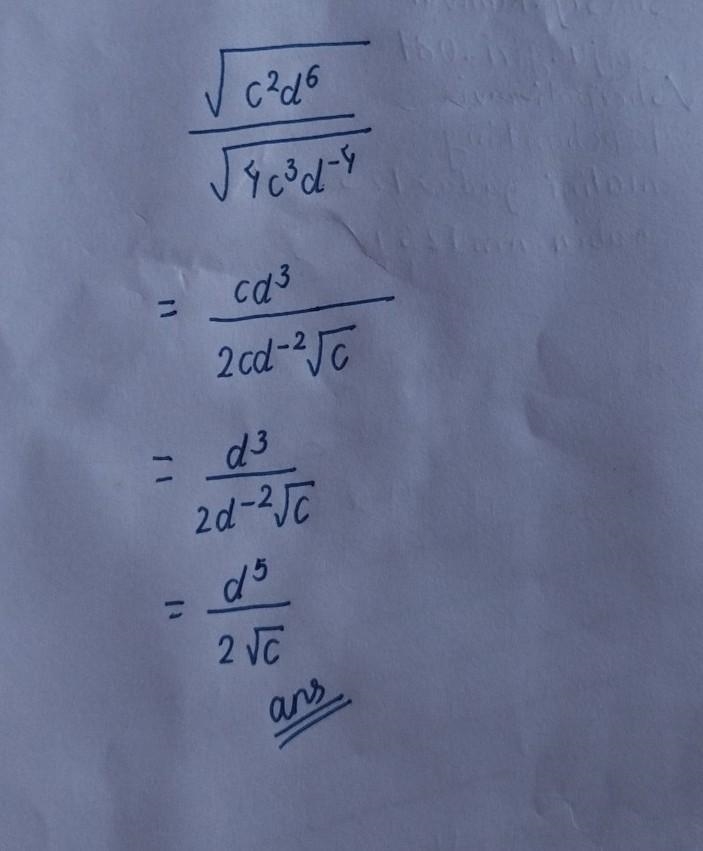 √(c²d⁶)
√(4c³d⁻⁴)
= cd³
2cd⁻²√c
= d³
2d⁻²√c
= d⁵
2√c
ans